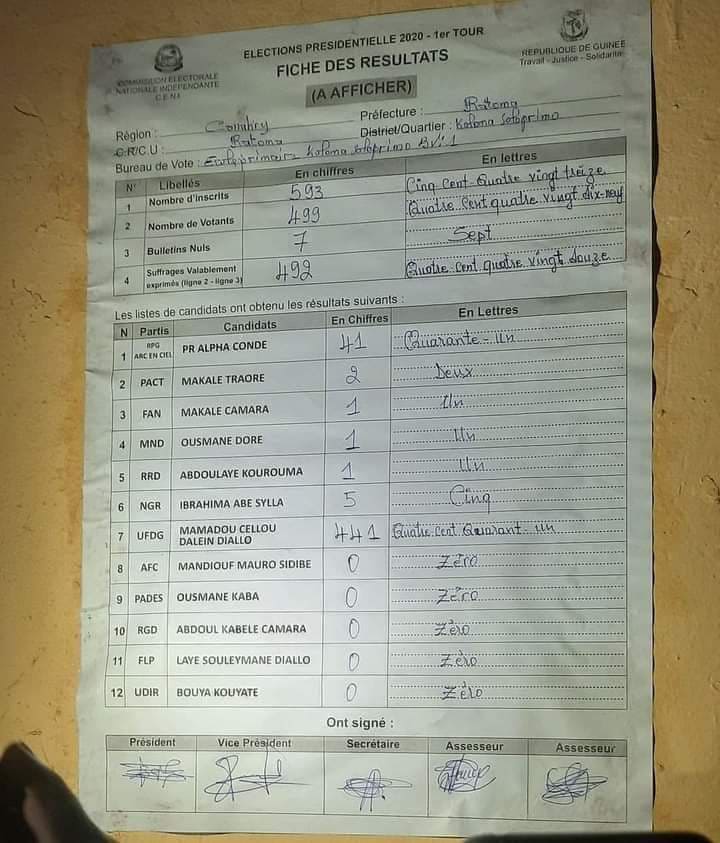 COMMISSION ELECTORALE
NATIONALE INDEPENDANTE
C.E.N.I
ELECTIONS PRESIDENTIELLE 2020 - 1er TOUR
FICHE DES RESULTATS
(A AFFICHER)
REPUBLIQUE DE GUINEE
Travail - Justice - Solidarité
Région : Conakry Préfecture : Ratoma
C.R/C.U : Ratoma District/Quartier : Koloma Soloprimo
Bureau de Vote : Ecole primaire Koloma Soloprimo BV: 1
N° Libellés En chiffres En lettres
1 Nombre d'Inscrits 593 Cinq Cent Quatre vingt treize
2 Nombre de Votants 499 Quatre Cent quatre vingt dix-neuf
3 Bulletins Nuls 7 Sept
4 Suffrages Valablement exprimés (ligne 2 - ligne 3) 492 Quatre Cent quatre vingt douze
Les listes de candidats ont obtenu les résultats suivants :
N Partis Candidats En Chiffres En Lettres
1 RPG ARC EN CIEL PR ALPHA CONDE 41 Quarante-Un
2 PACT MAKALE TRAORE 2 Deux
3 FAN MAKALE CAMARA 1 Un
4 MND OUSMANE DORE 1 Un
5 RRD ABDOULAYE KOUROUMA 1 Un
6 NGR IBRAHIMA ABE SYLLA 5 Cinq
7 UFDG MAMADOU CELLOU DALEIN DIALLO 441 Quatre Cent Quarant-un
8 AFC MANDIOUF MAURO SIDIBE 0 Zéro
9 PADES OUSMANE KABA 0 Zéro
10 RGD ABDOUL KABELE CAMARA 0 Zéro
11 FLP LAYE SOULEYMANE DIALLO 0 Zéro
12 UDIR BOUYA KOUYATE 0 Zéro
Ont signé :
Président Vice Président Secrétaire Assesseur Assesseur